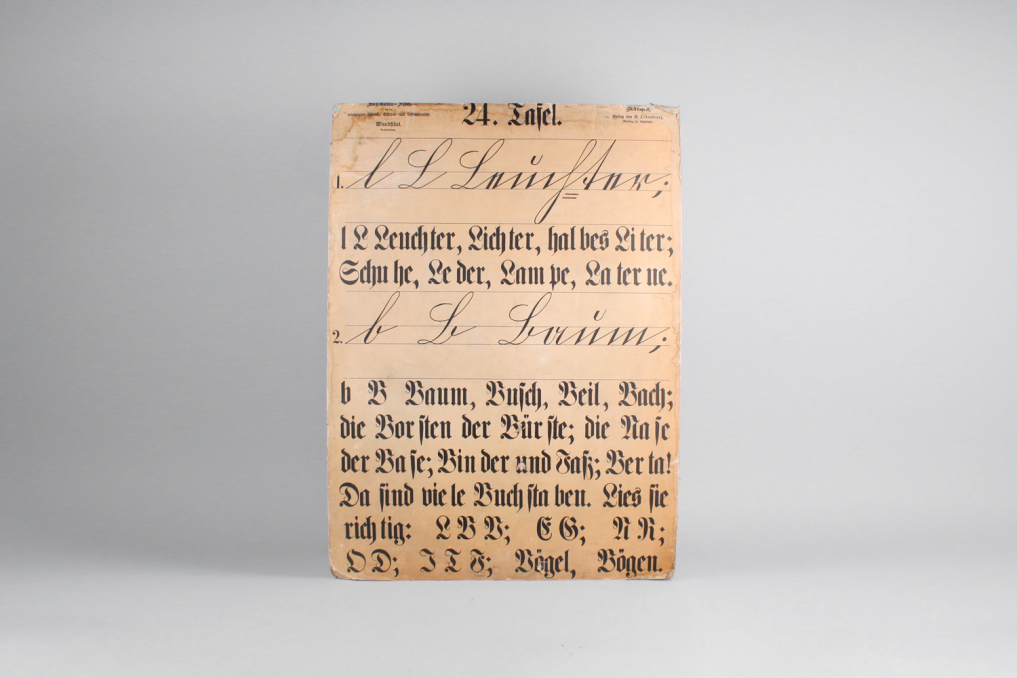 24. Tafel.
Wandfibel.
1. l L Leuchter;
l L Leuch ter, Lich ter, hal bes Li ter;
Schu he, Le der, Lam pe, La ter ne.
2. b B Baum;
b B Baum, Busch, Beil, Bach;
die Bor sten der Bür ste; die Na se
der Ba se; Bin der und Faß; Ber ta!
Da sind vie le Buch sta ben. Lies sie
rich tig: L B V; E G; N R;
O D; I T F; Vögel, Bögen.